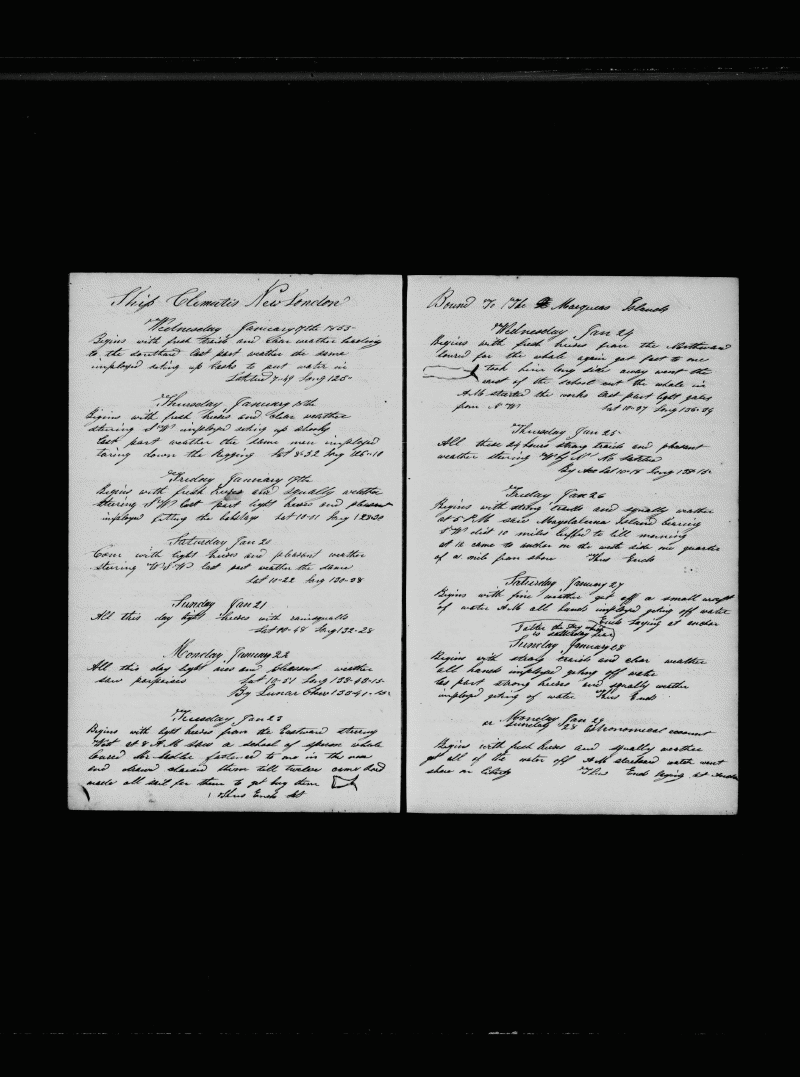 Ship Clematis New London
Wednesday January 17th 1855
Begins with fresh traids and clear weather hauling
to the southard last part weather the same
imployed seting up casks to put water in
Lat 7-49 Long 125-
Thursday January 18th
Begins with fresh breses and clear weather
steering S W imployed seting up shooks
last part weather the same men imployed
taring down the rigging Lat 8-52 Long 126-10
Friday January 19th
Begins with fresh breses and squally weather
steering S W last part light breses and pleasant
imployed fitting the bobstays Lat 10-11 Long 128-20
Saturday Jan 20
Com with light breses and pleasant weather
steering W S W last part weather the same
Lat 10-22 Long 130-08
Sunday Jan 21
All this day light breses with rainsqualls
Lat 10-48 Long 132-28
Monday January 22
All this day light airs and pleasant weather
saw porpoises Lat 10-51 Long 133-48-15
By Lunar Obser 133-41-15
Tuesday Jan 23
Begins with light breses from the Eastward steering
West at 8 A M saw a school of sperm whale
loared Mr fastened to one in the
and drawed chased them till twelve came bord
made all sail for them to get
Thus Ends
Bound To The Marqueas Islands
Wednesday Jan 24
Begins with fresh breses from the Northward
loared for the whale again got fast to one
took him long side away went the
rest of the school cut the whale in
A M started the works last part light gales
from N W Lat 10-37 Long 136-04
Thursday Jan 25
All these 24 hours strong traids and pleasant
weather steering W S W
Lat 10-18 Long 138-15
Friday Jan 26
Begins with strong traids and squally weather
at 5 P M saw Magdalenna Island bearing
S W dist 10 miles luffed to till morning
at 12 came to anchor on the west side one quarter
of a mile from shore Thus Ends
Saturday January 27
Begins with fine weather got off a small raft
of water A M all hands imployed geting off water
Ends laying at anchor
Father the day
is saturday
Sunday January 28
Begins with strong traids and clear weather
all hands imployed geting off water
las part strong breses and squally weather
imployd geting of water Thus Ends
Monday Jan 29
or Sunday 28 Astronomical account
Begins with fresh breses and squally weather
got all of the water off A M starboard watch went
shore on liberty Thus Ends laying at Anchor